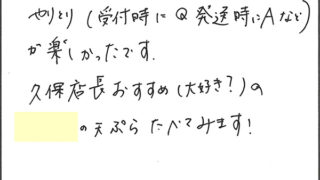 やりとり(受付時にQ 発送時にAなど)
が楽しかったです.
久保店長おすすめ(大好き?)の
の天ぷらたべてみます!